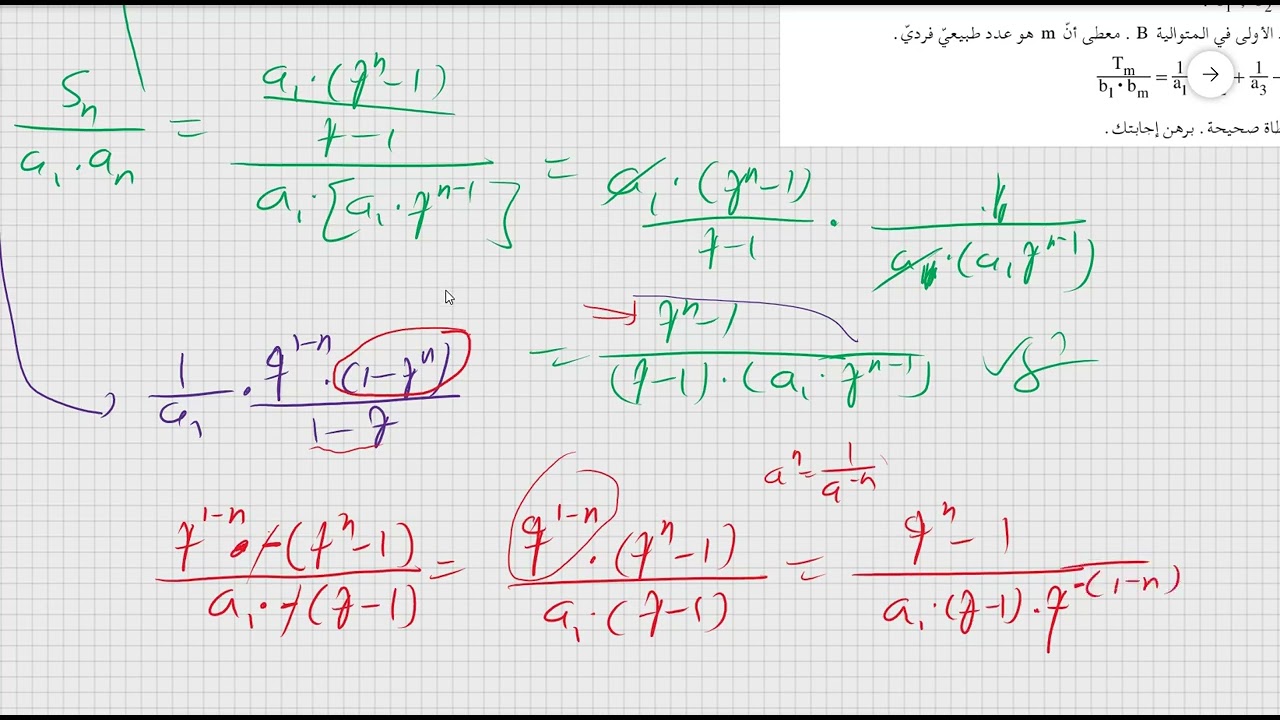 الأولى في المتوالية B . معطى أنّ m هو عدد طبيعيّ فرديّ.
T_m / (b_1 • b_m) = 1/a_1 → + 1/a_3 -
صحيحة. برهن إجابتك.
S_n / (a_1 · a_n) = (a_1 · (q^n - 1) / (q - 1)) / (a_1 · [a_1 · q^{n-1}]) = (a_1 · (q^n - 1)) / (q - 1) · 1 / (a_1 · (a_1 q^{n-1}))
= (q^n - 1) / ((q - 1) · (a_1 · q^{n-1}))
1/a_1 · (q^{1-n} · (1 - q^n)) / (1 - q)
a^n = 1 / a^{-n}
(q^{1-n} · -(q^n - 1)) / (a_1 · -(q - 1)) = (q^{1-n} · (q^n - 1)) / (a_1 · (q - 1)) = (q^n - 1) / (a_1 · (q - 1) · q^{-(1-n)})